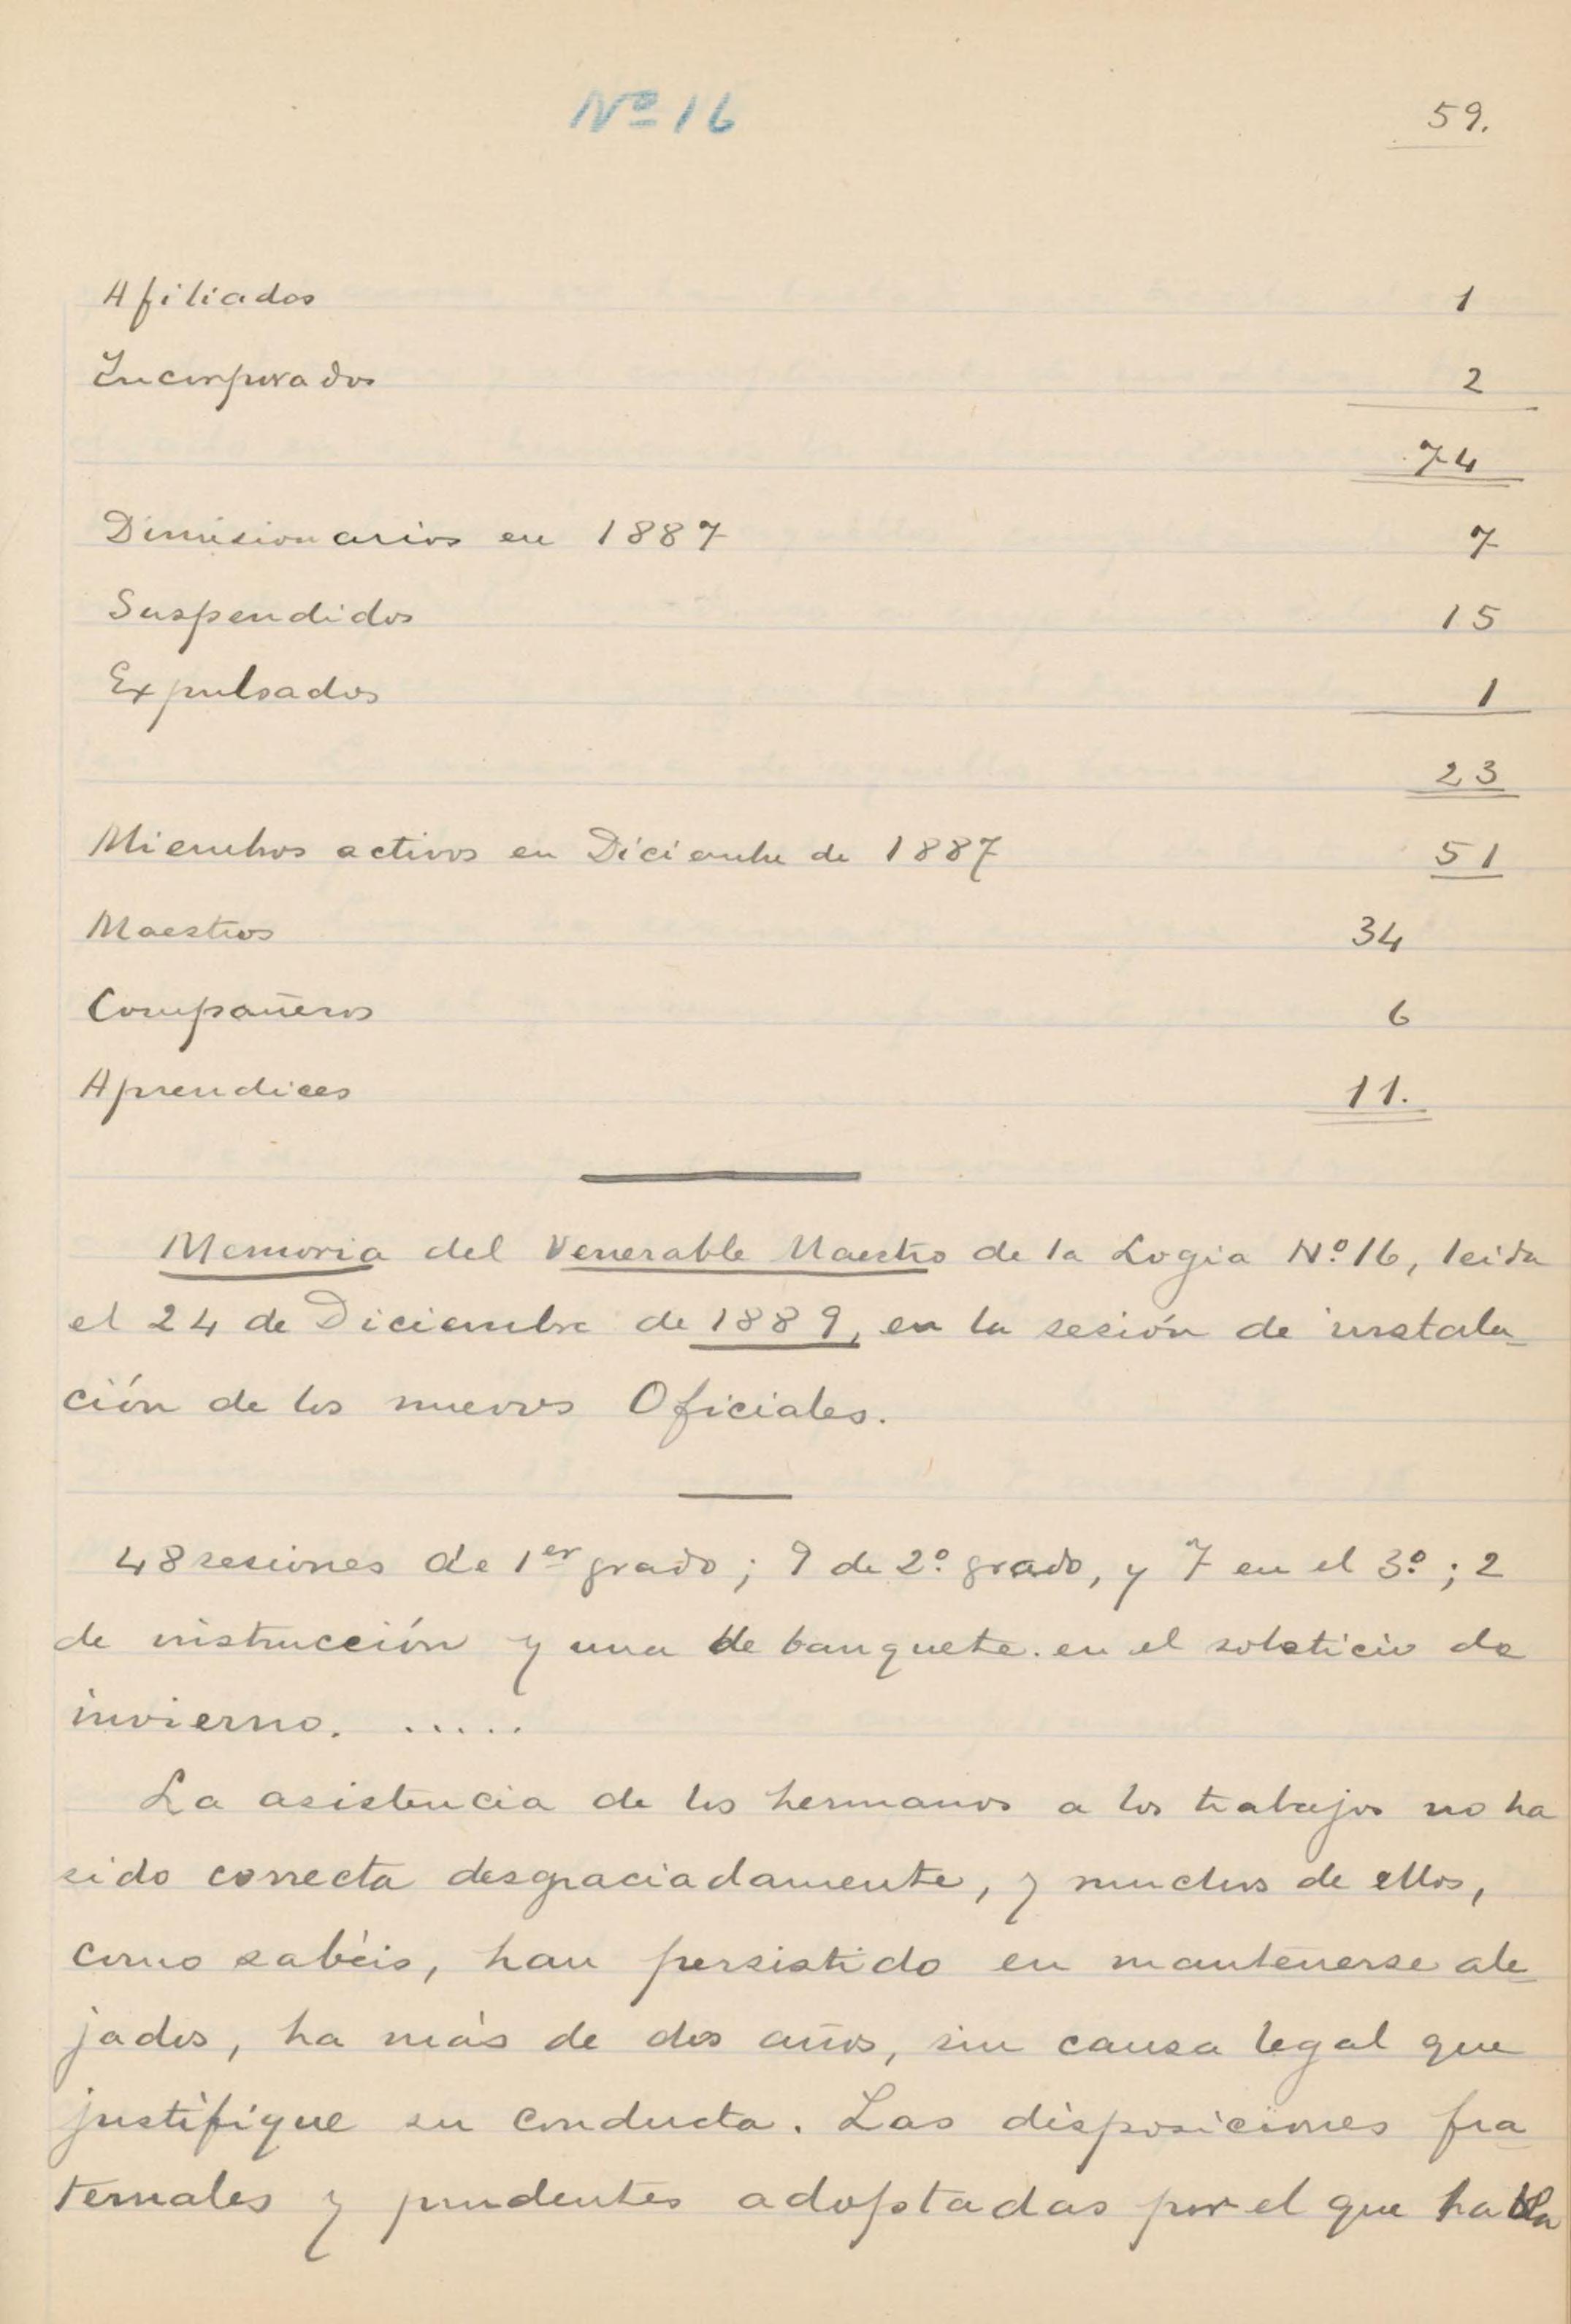 Nº 16
59.
Afiliados 1
Incorporados 2
74
Dimisionarios en 1887 7
Suspendidos 15
Expulsados 1
23
Miembros activos en Diciembre de 1887 51
Maestros 34
Compañeros 6
Aprendices 11.
Memoria del Venerable Maestro de la Logia Nº 16, leida
el 24 de Diciembre de 1889, en la sesión de instala-
ción de los nuevos Oficiales.
48 sesiones de 1er grado; 9 de 2º grado, y 7 en el 3º; 2
de instrucción y una de banquete. en el solsticio de
invierno. .....
La asistencia de los hermanos a los trabajos no ha
sido correcta desgraciadamente, y muchos de ellos,
como sabéis, han persistido en mantenerse ale-
jados, ha más de dos años, sin causa legal que
justifique su conducta. Las disposiciones fra-
ternales y prudentes adoptadas por el que habla